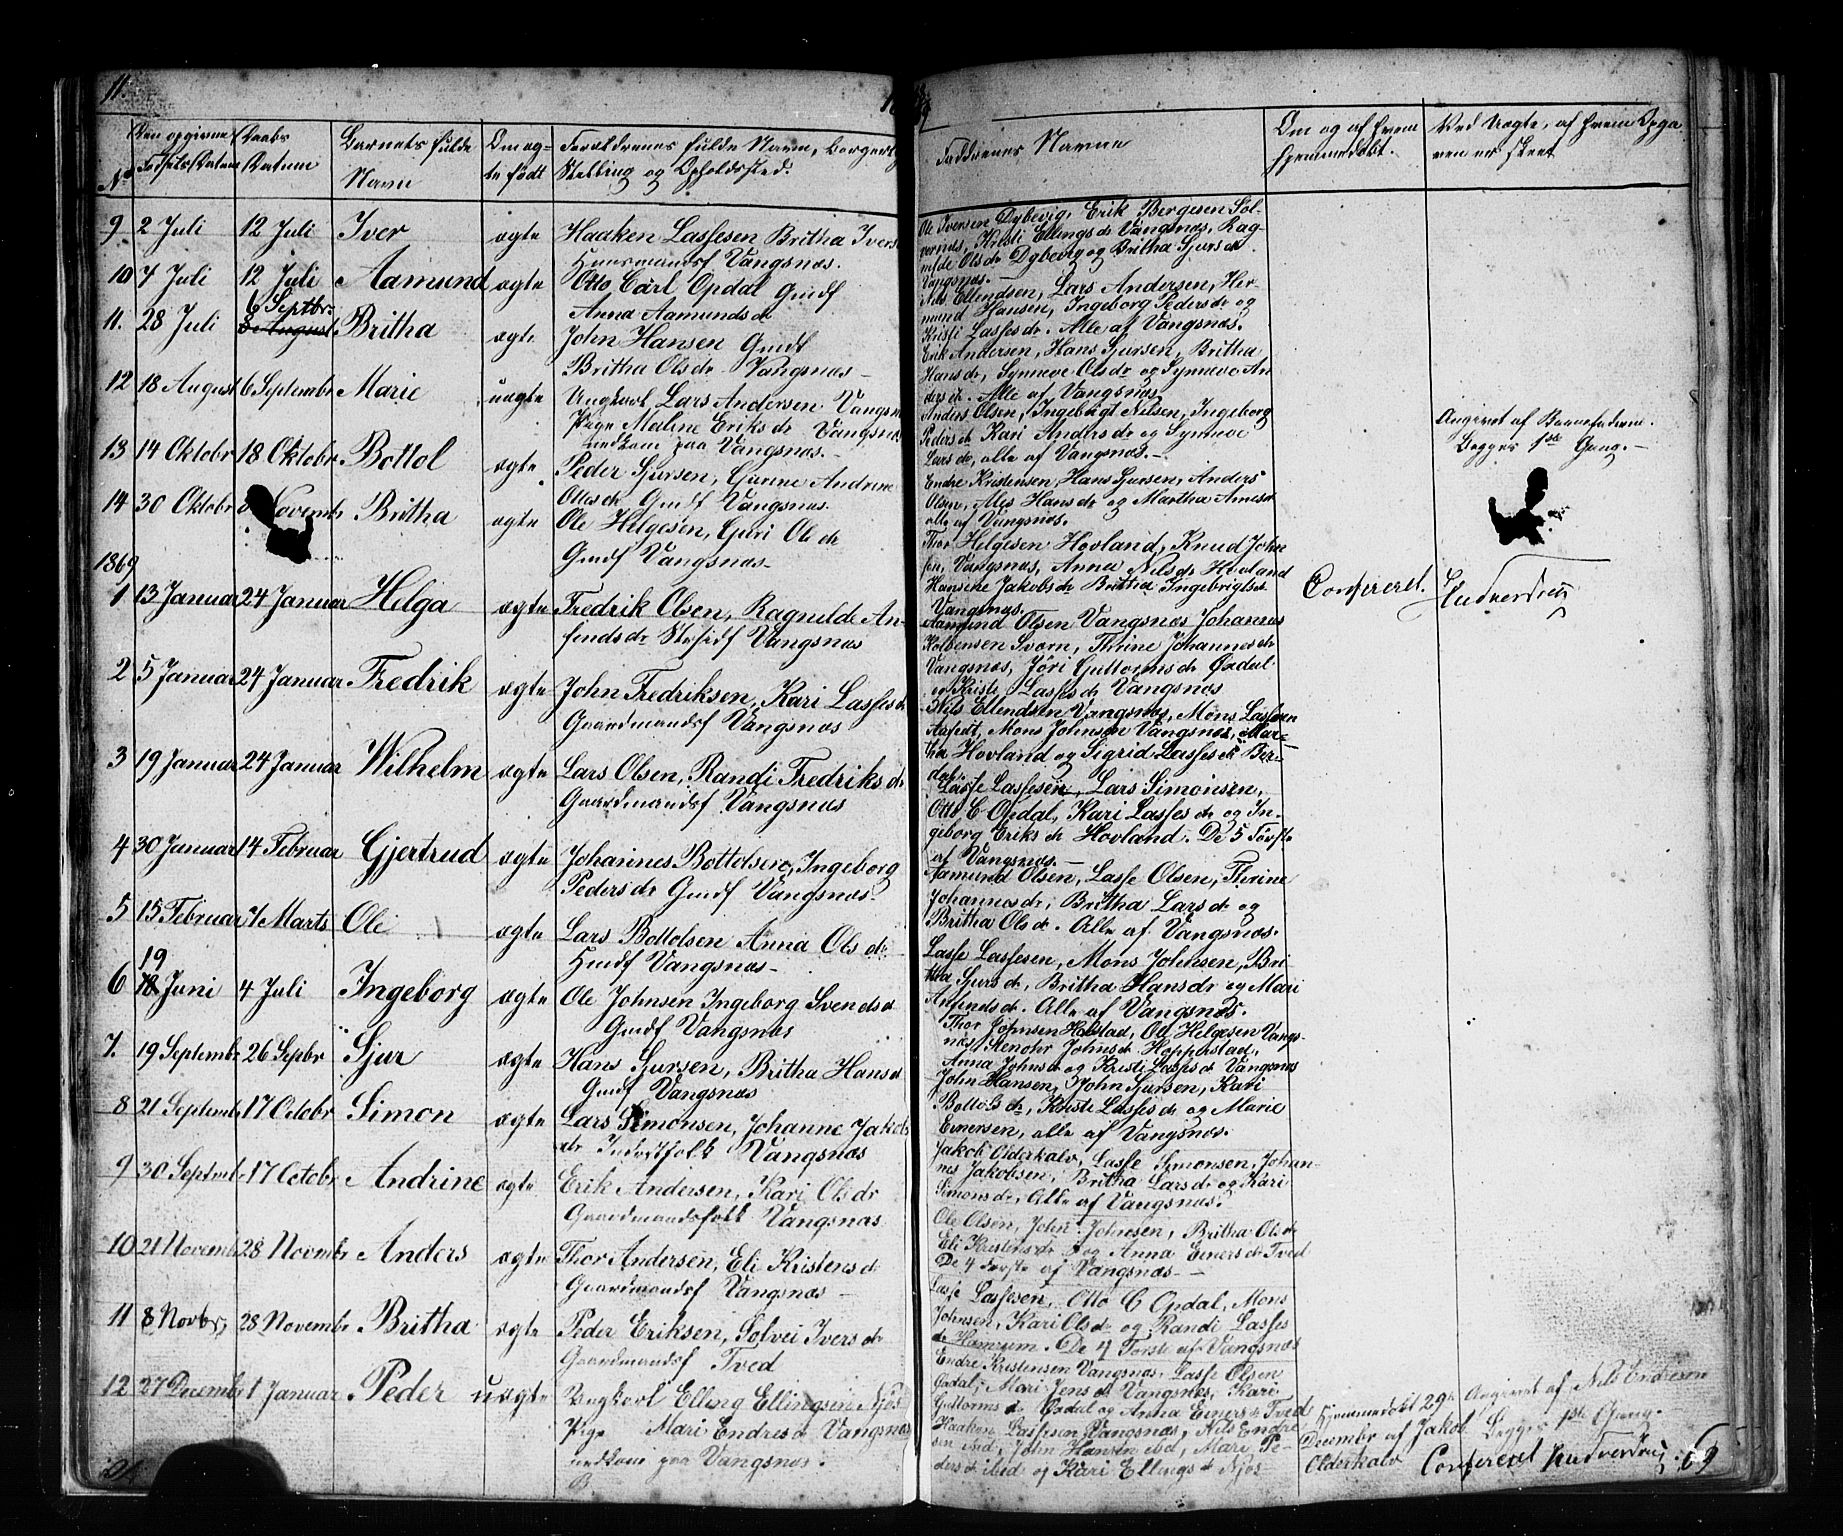 11.
No
Den opgivne Fødsels Datum
Daabs Datum
Barnets fulde Navn
Om æg- te født
Forældrenes fulde Navn, Borgerl Stelling og Opholdssted.
Faddrenes Navne
Om og af hvem hjemmedøbt.
Ved Uægte, af hvem Opga ven er skeet
9 2 Juli 12 Juli Iver ægte Haaken Lassesen Britha Ivers
Huusmandsf Vangsnæs.
Ole Iversen Dybevig, Erik Bergesen Sol-
vernæs, Kristi Ellings dr Vangsnæs, Rag-
nilde Ols dr Dybevig og Britha Sjurs dr
Vangsnæs.
10 7 Juli 12 Juli Aamund ægte Otto Carl Opdal Gmdf
Anna Aamunds dr
Nils Ellendsen, Lars Andersen, Her-
mund Hansen, Ingeborg Peders dr og
Kristi Lasses dr. Alle af Vangsnæs.
11. 28 Juli 6 Septbr. 8 August Britha ægte John Hansen Gmdf
Britha Ols dr Vangsnæs
Erik Andersen, Hans Sjursen, Britha
Hans dr, Synneve Ols dr og Synneve An
ders dr. Alle af Vangsnæs
12 18 August 6 Septembr Marie uægte Ungkarl Lars Andersen Vangsn
Pige Maline Eriks dr Vangsnæs
nedkom paa Vangsnæs.
Anders Olsen, Ingebrigt Nilsen, Ingeborg
Peders dr Kari Anders dr og Synneve
Lars dr, alle af Vangsnæs.
Angivet af Barnefaderen.
Begges 1ste Gang.
13 14 Oktobr 18 Oktobr Bottol ægte Peder Sjursen, Gurine Andrine
Ottos dr Gmdf Vangsnæs.
Endre Kristensen, Hans Sjursen, Anders
Olsen, Ales Hans dr og Martha
alle af Vangsnæs.
14 30 Oktobr 8 Novembr Britha ægte Ole Helgesen, Guri Ole dr
Gmdf Vangsnæs
Thor Helgesen Hovland, Knud John
sen, Vangsnæs, Anna Nils dr Hovland
Hansine Jakobs dr Britha Ingebrigts
Vangsnæs.
1869
1 13 Januar 24 Januar Helga ægte Fredrik Olsen, Ragnilde An-
finds dr Vangsnæs
Aamund Olsen Vangsnæs Johannes
Kolbensen Svorn, Thrine Johannes dr
Vangsnæs, Jöri Guttorms dr Opdal
og Kristi Lasses dr Vangsnæs
Confereret.
2 5 Januar 24 Januar Fredrik ægte John Fredriksen, Kari Lasses dr
Gaardmandsf Vangsnæs
Nils Ellendsen Vangsnæs, Mons Lassesen
Mons Johnsen Vangsnæs, Mar-
tha Hovland og Sigrid Lasses dr Ber-
dal.
3 19 Januar 24 Januar Wilhelm ægte Lars Olsen, Randi Fredriks dr
Gaardmandsf Vangsnæs
Lasse Lassesen, Lars Simonsen,
Otto C Opdal, Kari Lasses dr og In-
geborg Eriks dr Hovland. De 5 Første
af Vangsnæs.
4 30 Januar 14 Februar Gjertrud ægte Johannes Bottolsen, Ingeborg
Peders dr Gmdf Vangsnæs.
Aamund Olsen, Lasse Olsen, Thrine
Johannes dr, Britha Lars dr og
Britha Ols dr. Alle af Vangsnæs.
5 15 Februar 7 Marts Ole ægte Lars Bottolsen Anna Ols dr
Hmdf Vangsnæs
Lasse Lassesen, Mons Johnsen, Bri-
tha Sjurs dr, Britha Hans dr og Mari
Anfinds dr. Alle af Vangsnæs.
6 19 18 Juni 4 Juli Ingeborg ægte Ole Johnsen Ingeborg Svends dr
Gmdf Vangsnæs
Thor Johnsen Ole Helgesen Vangs-
næs, Johns dr Hopperstad,
Anna Johns dr og Kristi Lasses dr Vangsnæs
7. 19 Septembr 26 Sepbr Sjur ægte Hans Sjursen, Britha Hans dr
Gmdf Vangsnæs
John Hansen, John Sjursen, Kari
Bottols dr, Kristi Lasses dr og Marie
Einersen, alle af Vangsnæs.
8 21 Septembr 17 Octobr Simon ægte Lars Simonsen, Johanne Jakobs
dr Inderstfolk Vangsnæs
Jakob Olderkalv, Lasse Simonsen, Johan-
nes Jakobsen, Britha Lars dr og Kari
Simons dr, Alle af Vangsnæs.
9 30 Septmbr 17 Octobr Andrine ægte Erik Andersen, Kari Ols dr
Gaardmandsfolk Vangsnæs
Ole Olsen, John Johnsen, Britha Ols dr
Eli Kristens dr og Anna Einers dr Tved
De 4 første af Vangsnæs
10 21 Novembr 28 Novmbr Anders ægte Thor Andersen, Eli Kristens dr
Gaardmandsf Vangsnæs
Lasse Lassesen, Otto C Opdal, Mons
Johnsen, Kari Ols dr og Randi Lasses
dr Hamrum. De 4 Første af Vangsnæs
11 8 Novbr, 28 Novembr Britha ægte Peder Eriksen, Solvei Ivers dr
Gaardmandsf Tved
Endre Kristensen Vangsnæs, Lasse Olsen
Opdal, Mari Jens dr Vangsnes, Kari
Guttorms dr Opdal og Anna Einers dr Tved
12 27 Decembr 1 Januar Peder uægte Ungkarl Elling Ellingsen Njøs
Pige Mari Endres dr Vangsnæs
nedkom paa Vangsnæs.
Haaken Lassesen Vangsnæs, Nils Endre
sen ibd, John Hansen ibd, Mari Pe-
ders dr ibid og Kari Ellings dr Njøs
Hjemmedøbt 29de
Decembr af Jakob
Olderkalv
Angivet af Nils Endresen
Begges 1ste Gang.
Confereret
69